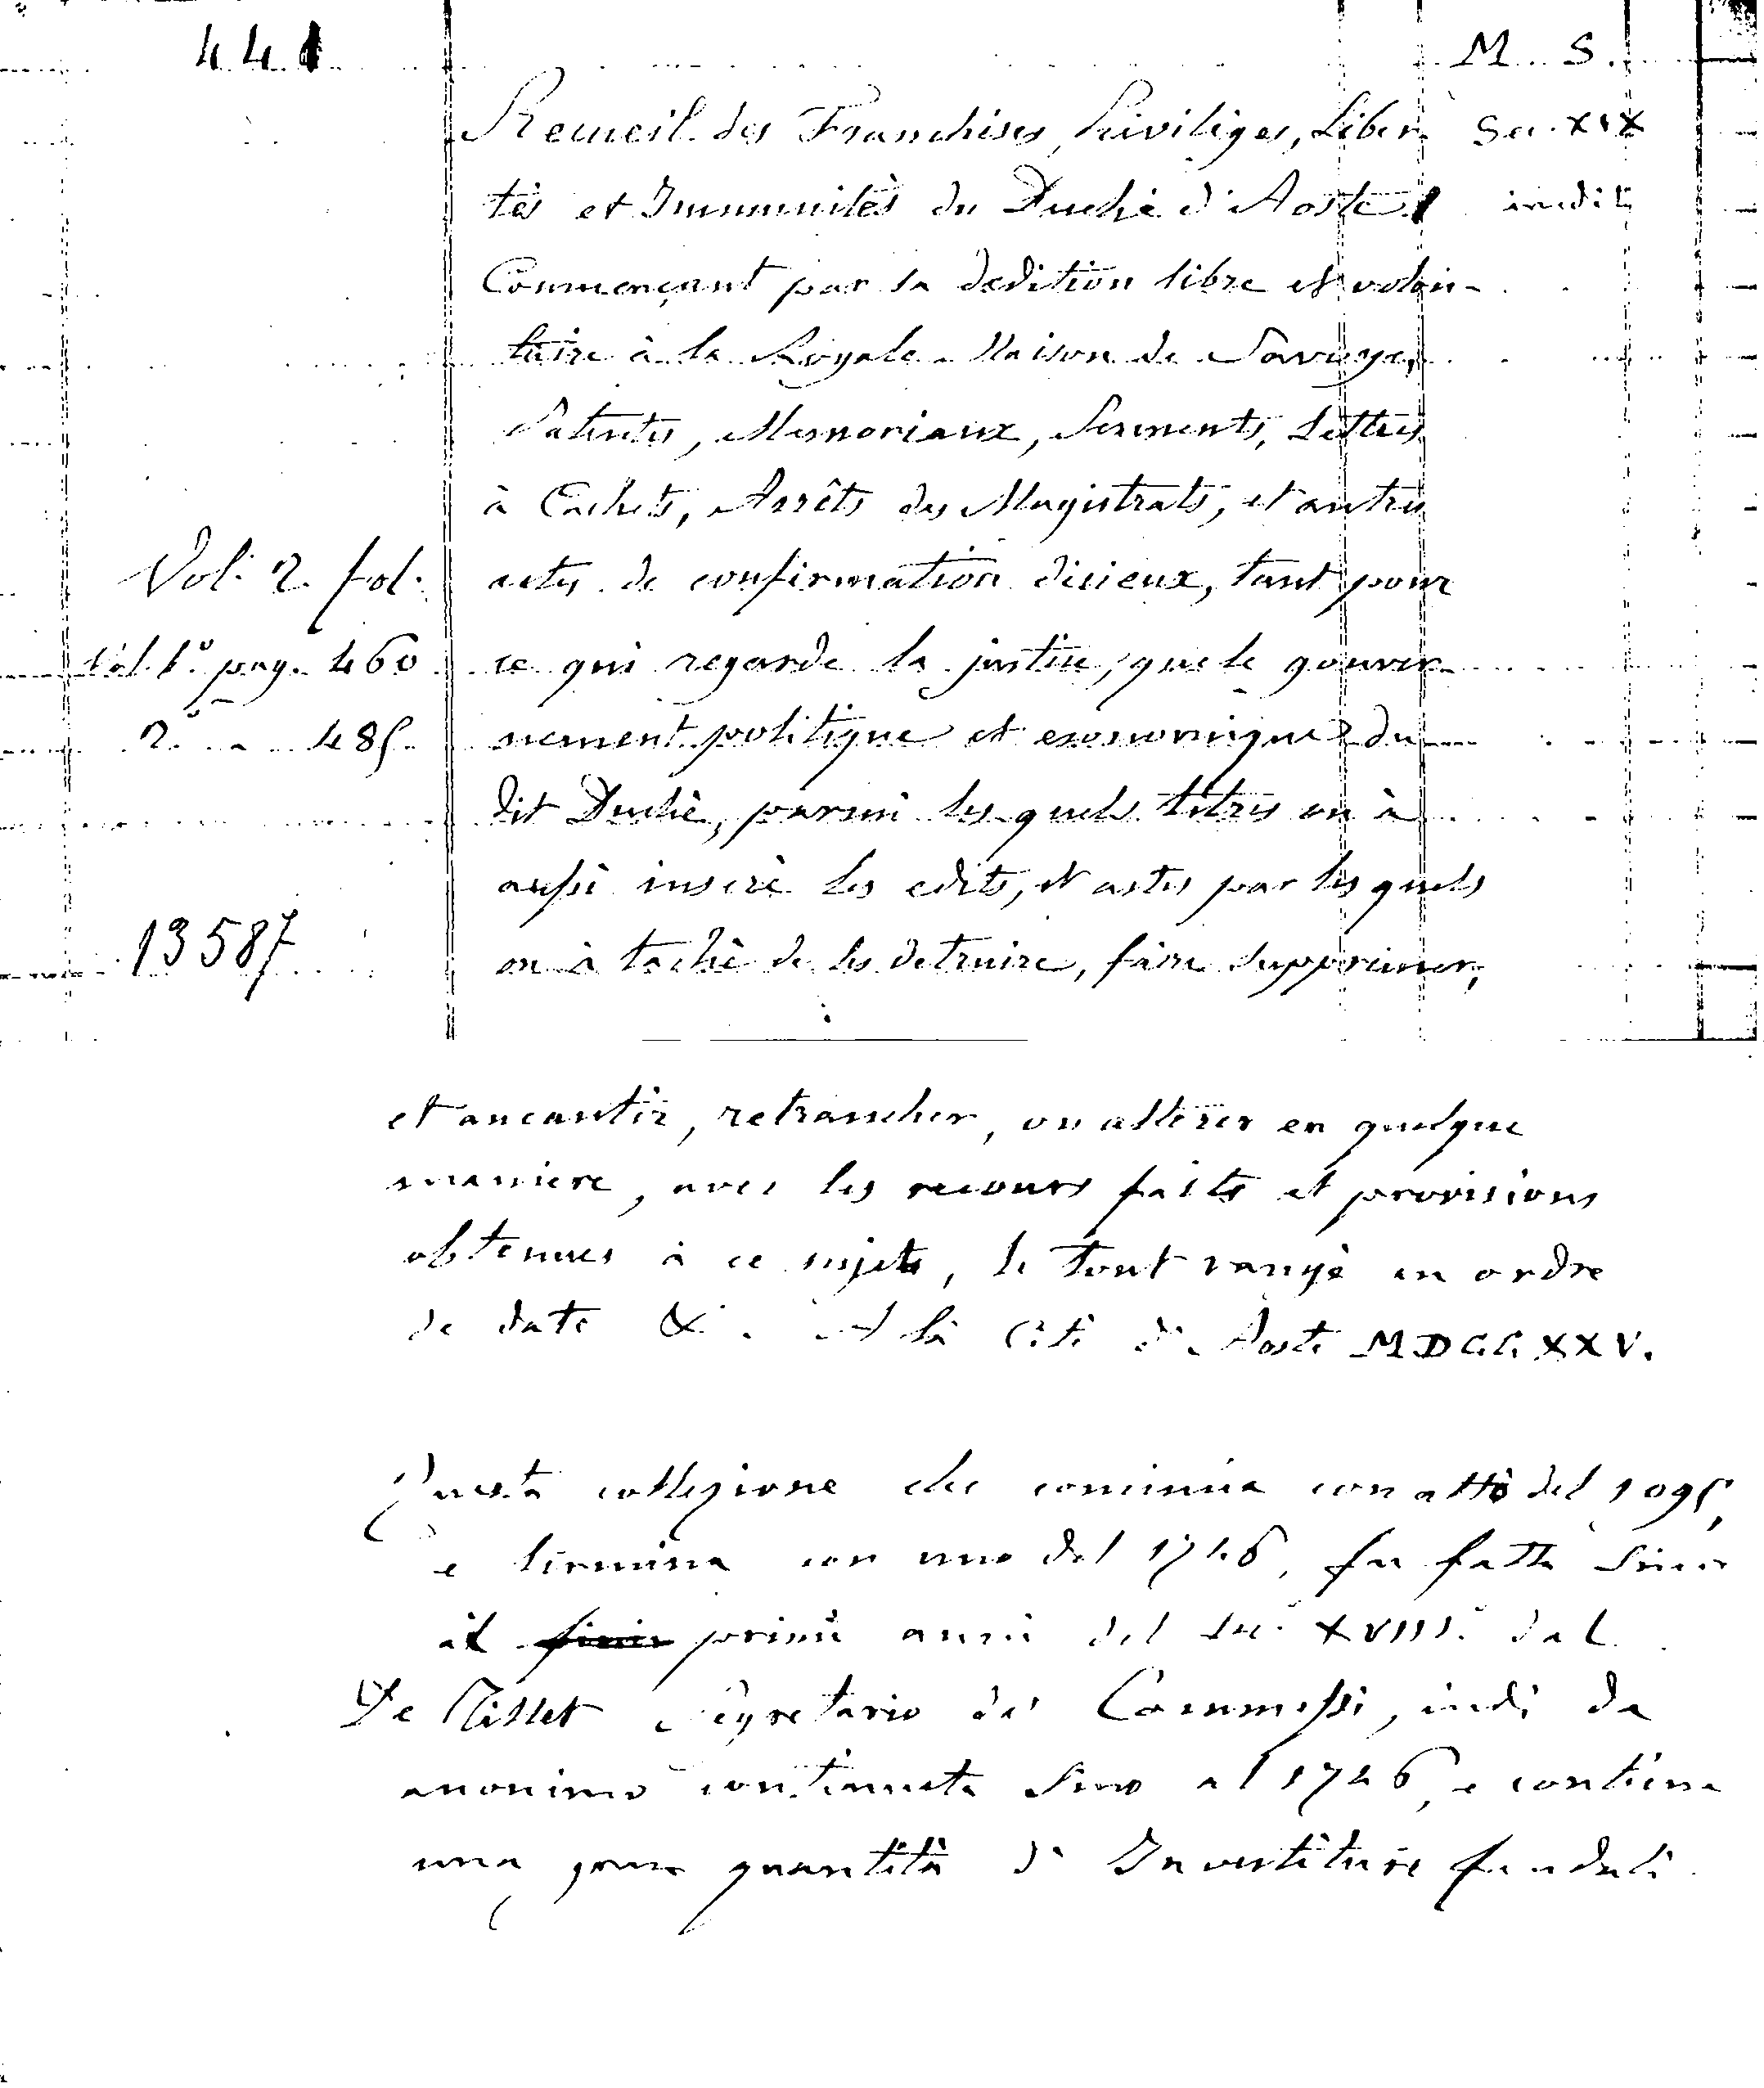 441
M. S.
Recueil des Franchises, Priviliges, Liber
Sec. XIX
tés et Immunités du Duché d'Aoste
inedit
Commençant par la dedition libre et volon-
taire à la Royale Maison de Savoye,
Patentes, Memoriaux, Serments, Lettres
à Cachets, Arrêts des Magistrats, et autres
Vol. 2. fol.
actes de confirmation d'iceux, tant pour
Vol. 1.º pag. 460
ce qui regarde la justice, que le gouver
2.º - 485.
nement politique et economique du
dit Duchè, parmi les quels titres on à
aussi inserè les edits, et actes par les quels
13587
on à tachè de les detruire, faire supprimer,
et aneantir, retrancher, ou alterer en quelque
maniere, avec les recours faits et provisions
obtenues à ce sujet, le tout rangè en ordre
de date &. A la Cité d'Aoste MDCCXXV.
Questa collezione che comincia con atto del 1095,
e termina con uno del 1746, fu fatta sino
ai primi anni del sec. XVIII. dal
De Tillet Segretario de' Commessi, indi da
anonimo continuata sino al 1746, e contiene
una gran quantità di Investiture feudali